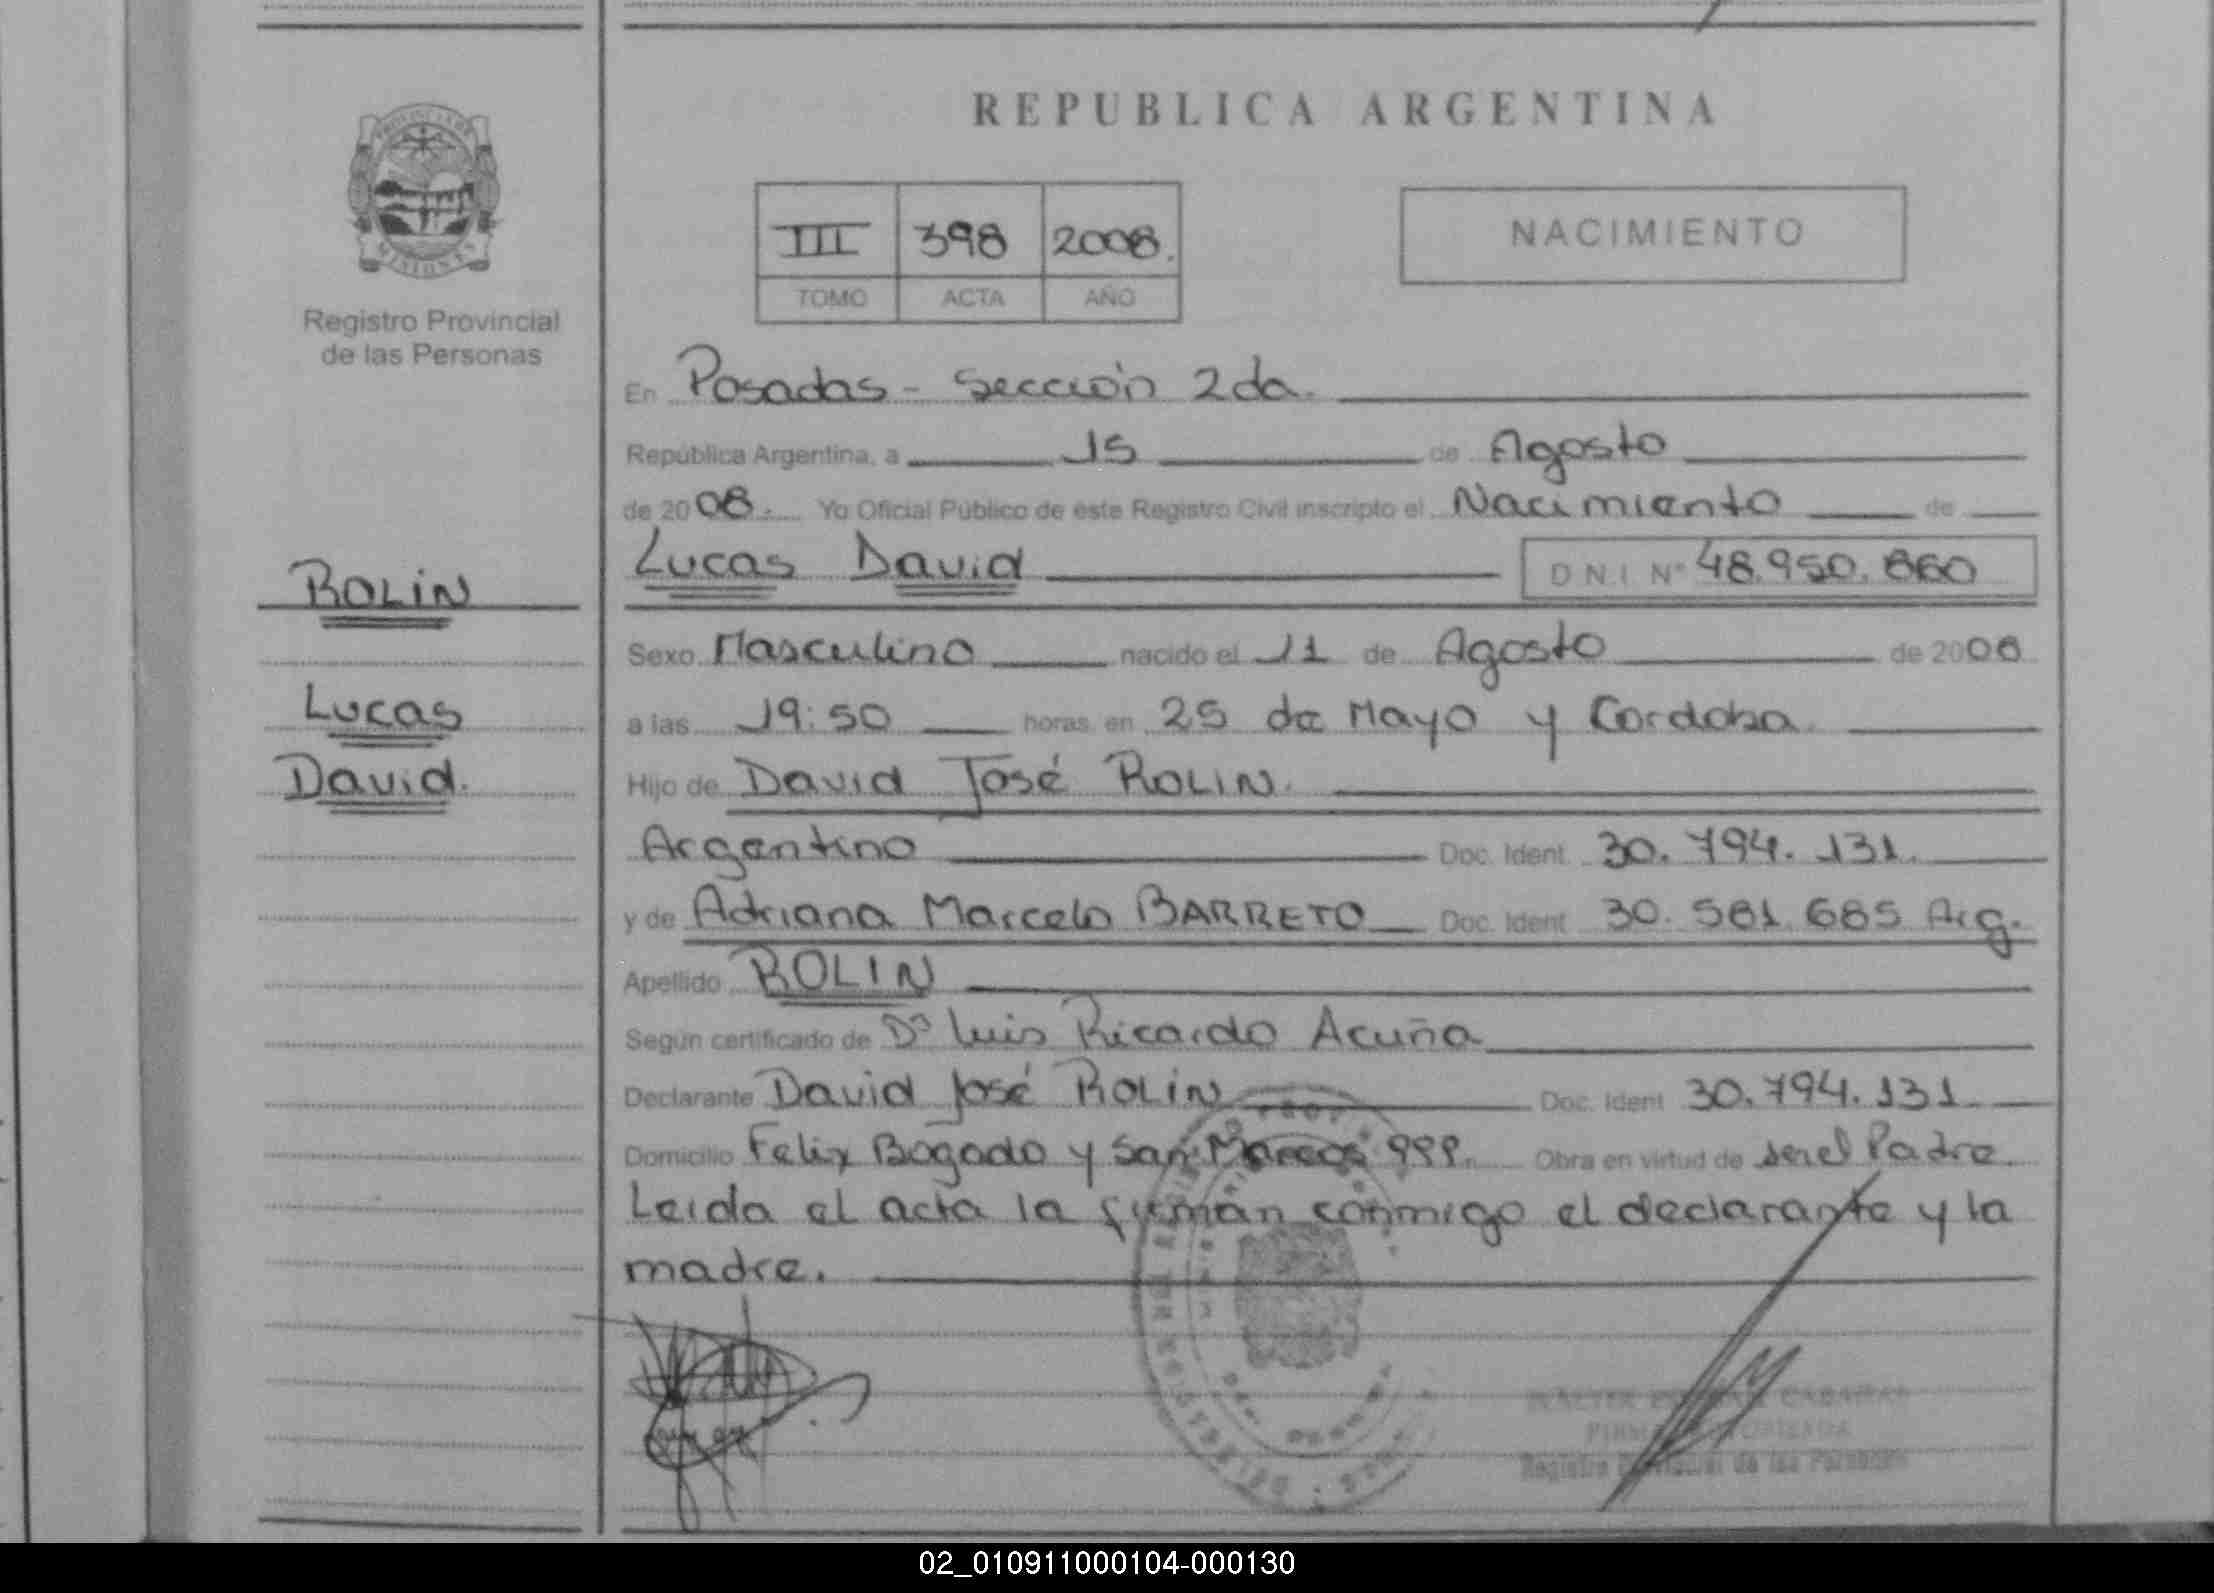 REPUBLICA ARGENTINA
PROVINCIA DE
MISIONES
Registro Provincial
de las Personas
III 398 2008.
TOMO ACTA AÑO
NACIMIENTO
En Posadas - Sección 2da.
República Argentina, a 15 de Agosto
de 2008. Yo Oficial Público de este Registro Civil inscripto el Nacimiento de
Lucas David DNI Nº 48.950.860
ROLIN
Lucas
David.
Sexo Masculino nacido el 11 de Agosto de 2008
a las 19:50 horas en 25 de Mayo y Cordoba.
Hijo de David José ROLIN.
Argentino Doc. Ident 30.794.131.
y de Adriana Marcela BARRETO Doc. Ident 30.581.685 Arg.
Apellido ROLIN
Según certificado de Dr Luis Ricardo Acuña
Declarante David José ROLIN Doc. Ident 30.794.131
Domicilio Felix Bogado y San Marcos 999. Obra en virtud de ser el Padre.
Leida el acta la firman conmigo el declarante y la
madre.
CABAÑAS
Registro Provincial de las Personas
02_010911000104-000130